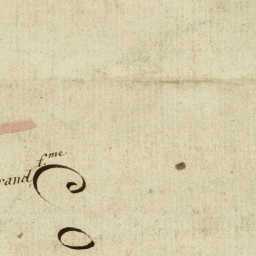 f.me
rand